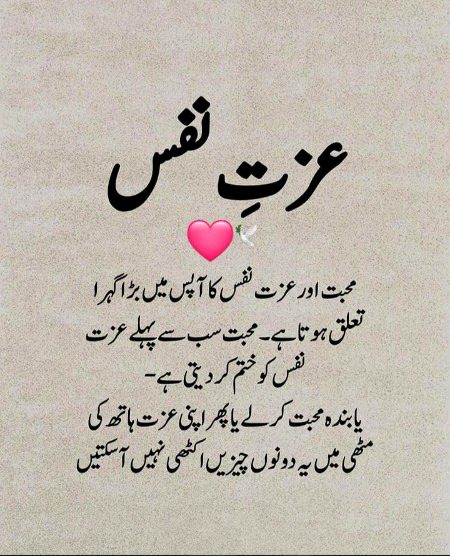 عزتِ نفس
محبت اور عزت نفس کا آپس میں بڑا گہرا
تعلق ہوتا ہے۔ محبت سب سے پہلے عزت
نفس کو ختم کر دیتی ہے-
یا بندہ محبت کر لے یا پھر اپنی عزت ہاتھ کی
مٹھی میں یہ دونوں چیزیں اکٹھی نہیں آسکتیں